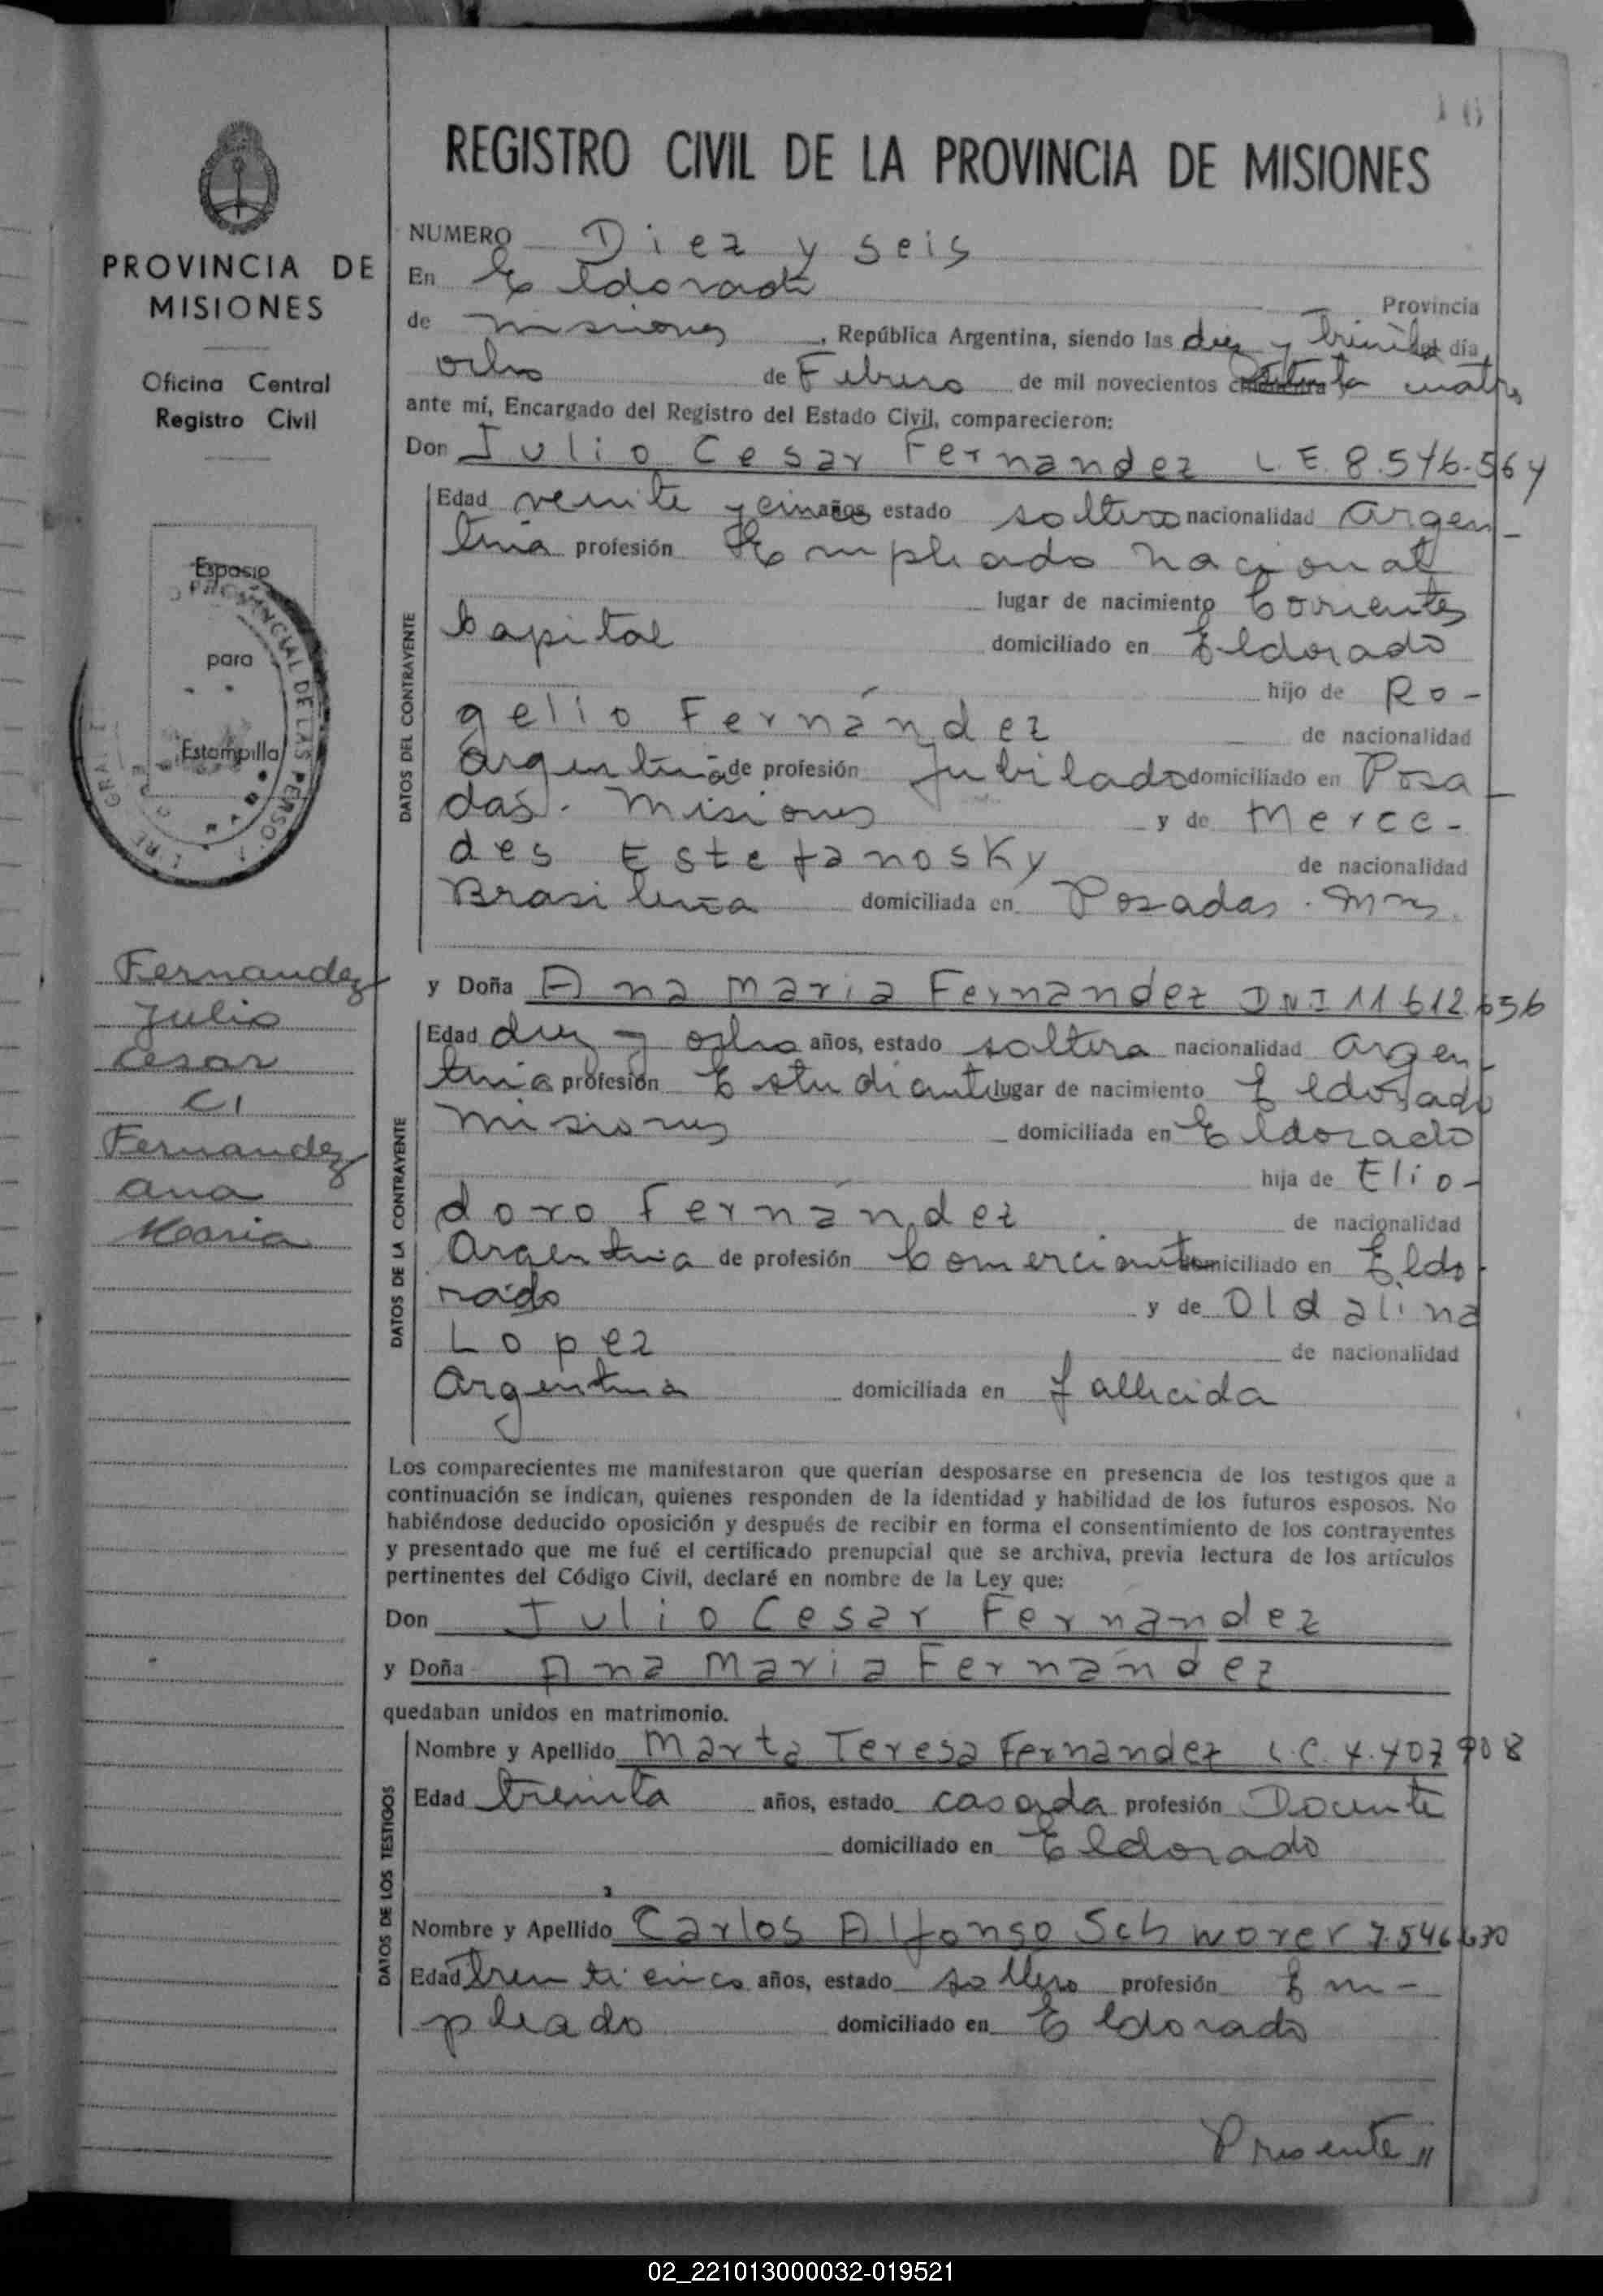 REGISTRO CIVIL DE LA PROVINCIA DE MISIONES
PROVINCIA DE
MISIONES
Oficina Central
Registro Civil
Espacio
para
Estampilla
Fernandez
Julio
Cesar
C/
Fernandez
Ana
Maria
NUMERO Diez y seis
En Eldorado Provincia
de Misiones, República Argentina, siendo las diez y treinta del día
ocho de Febrero de mil novecientos setenta cuatro
ante mí, Encargado del Registro del Estado Civil, comparecieron:
Don Julio Cesar Fernandez L.E. 8.546.564
DATOS DEL CONTRAYENTE
Edad veinte y cinco años estado soltero nacionalidad Argen-
tina profesión Empleado nacional
lugar de nacimiento Corrientes
Capital domiciliado en Eldorado
hijo de Ro-
gelio Fernández de nacionalidad
Argentina de profesión Jubilado domiciliado en Posa-
das. Misiones y de Merce-
des Estefanosky de nacionalidad
Brasileña domiciliada en Posadas. Mnes.
y Doña Ana Maria Fernandez DNI 11.612.656
DATOS DE LA CONTRAYENTE
Edad diez y ocho años, estado soltera nacionalidad Argen-
tina profesión Estudiante lugar de nacimiento Eldorado
Misiones domiciliada en Eldorado
hija de Elio-
doro Fernández de nacionalidad
Argentina de profesión Comerciante domiciliado en Eldo-
rado y de Oldalina
Lopez de nacionalidad
Argentina domiciliada en fallecida
Los comparecientes me manifestaron que querían desposarse en presencia de los testigos que a
continuación se indican, quienes responden de la identidad y habilidad de los futuros esposos. No
habiéndose deducido oposición y después de recibir en forma el consentimiento de los contrayentes
y presentado que me fué el certificado prenupcial que se archiva, previa lectura de los artículos
pertinentes del Código Civil, declaré en nombre de la Ley que:
Don Julio Cesar Fernandez
y Doña Ana Maria Fernández
quedaban unidos en matrimonio.
DATOS DE LOS TESTIGOS
Nombre y Apellido Marta Teresa Fernandez L.C. 4.407.908
Edad treinta años, estado casada profesión Docente
domiciliado en Eldorado
Nombre y Apellido Carlos Alfonso Schworer 7.546.630
Edad treinticinco años, estado soltero profesión Em-
pleado domiciliado en Eldorado
Presente //
02_221013000032-019521